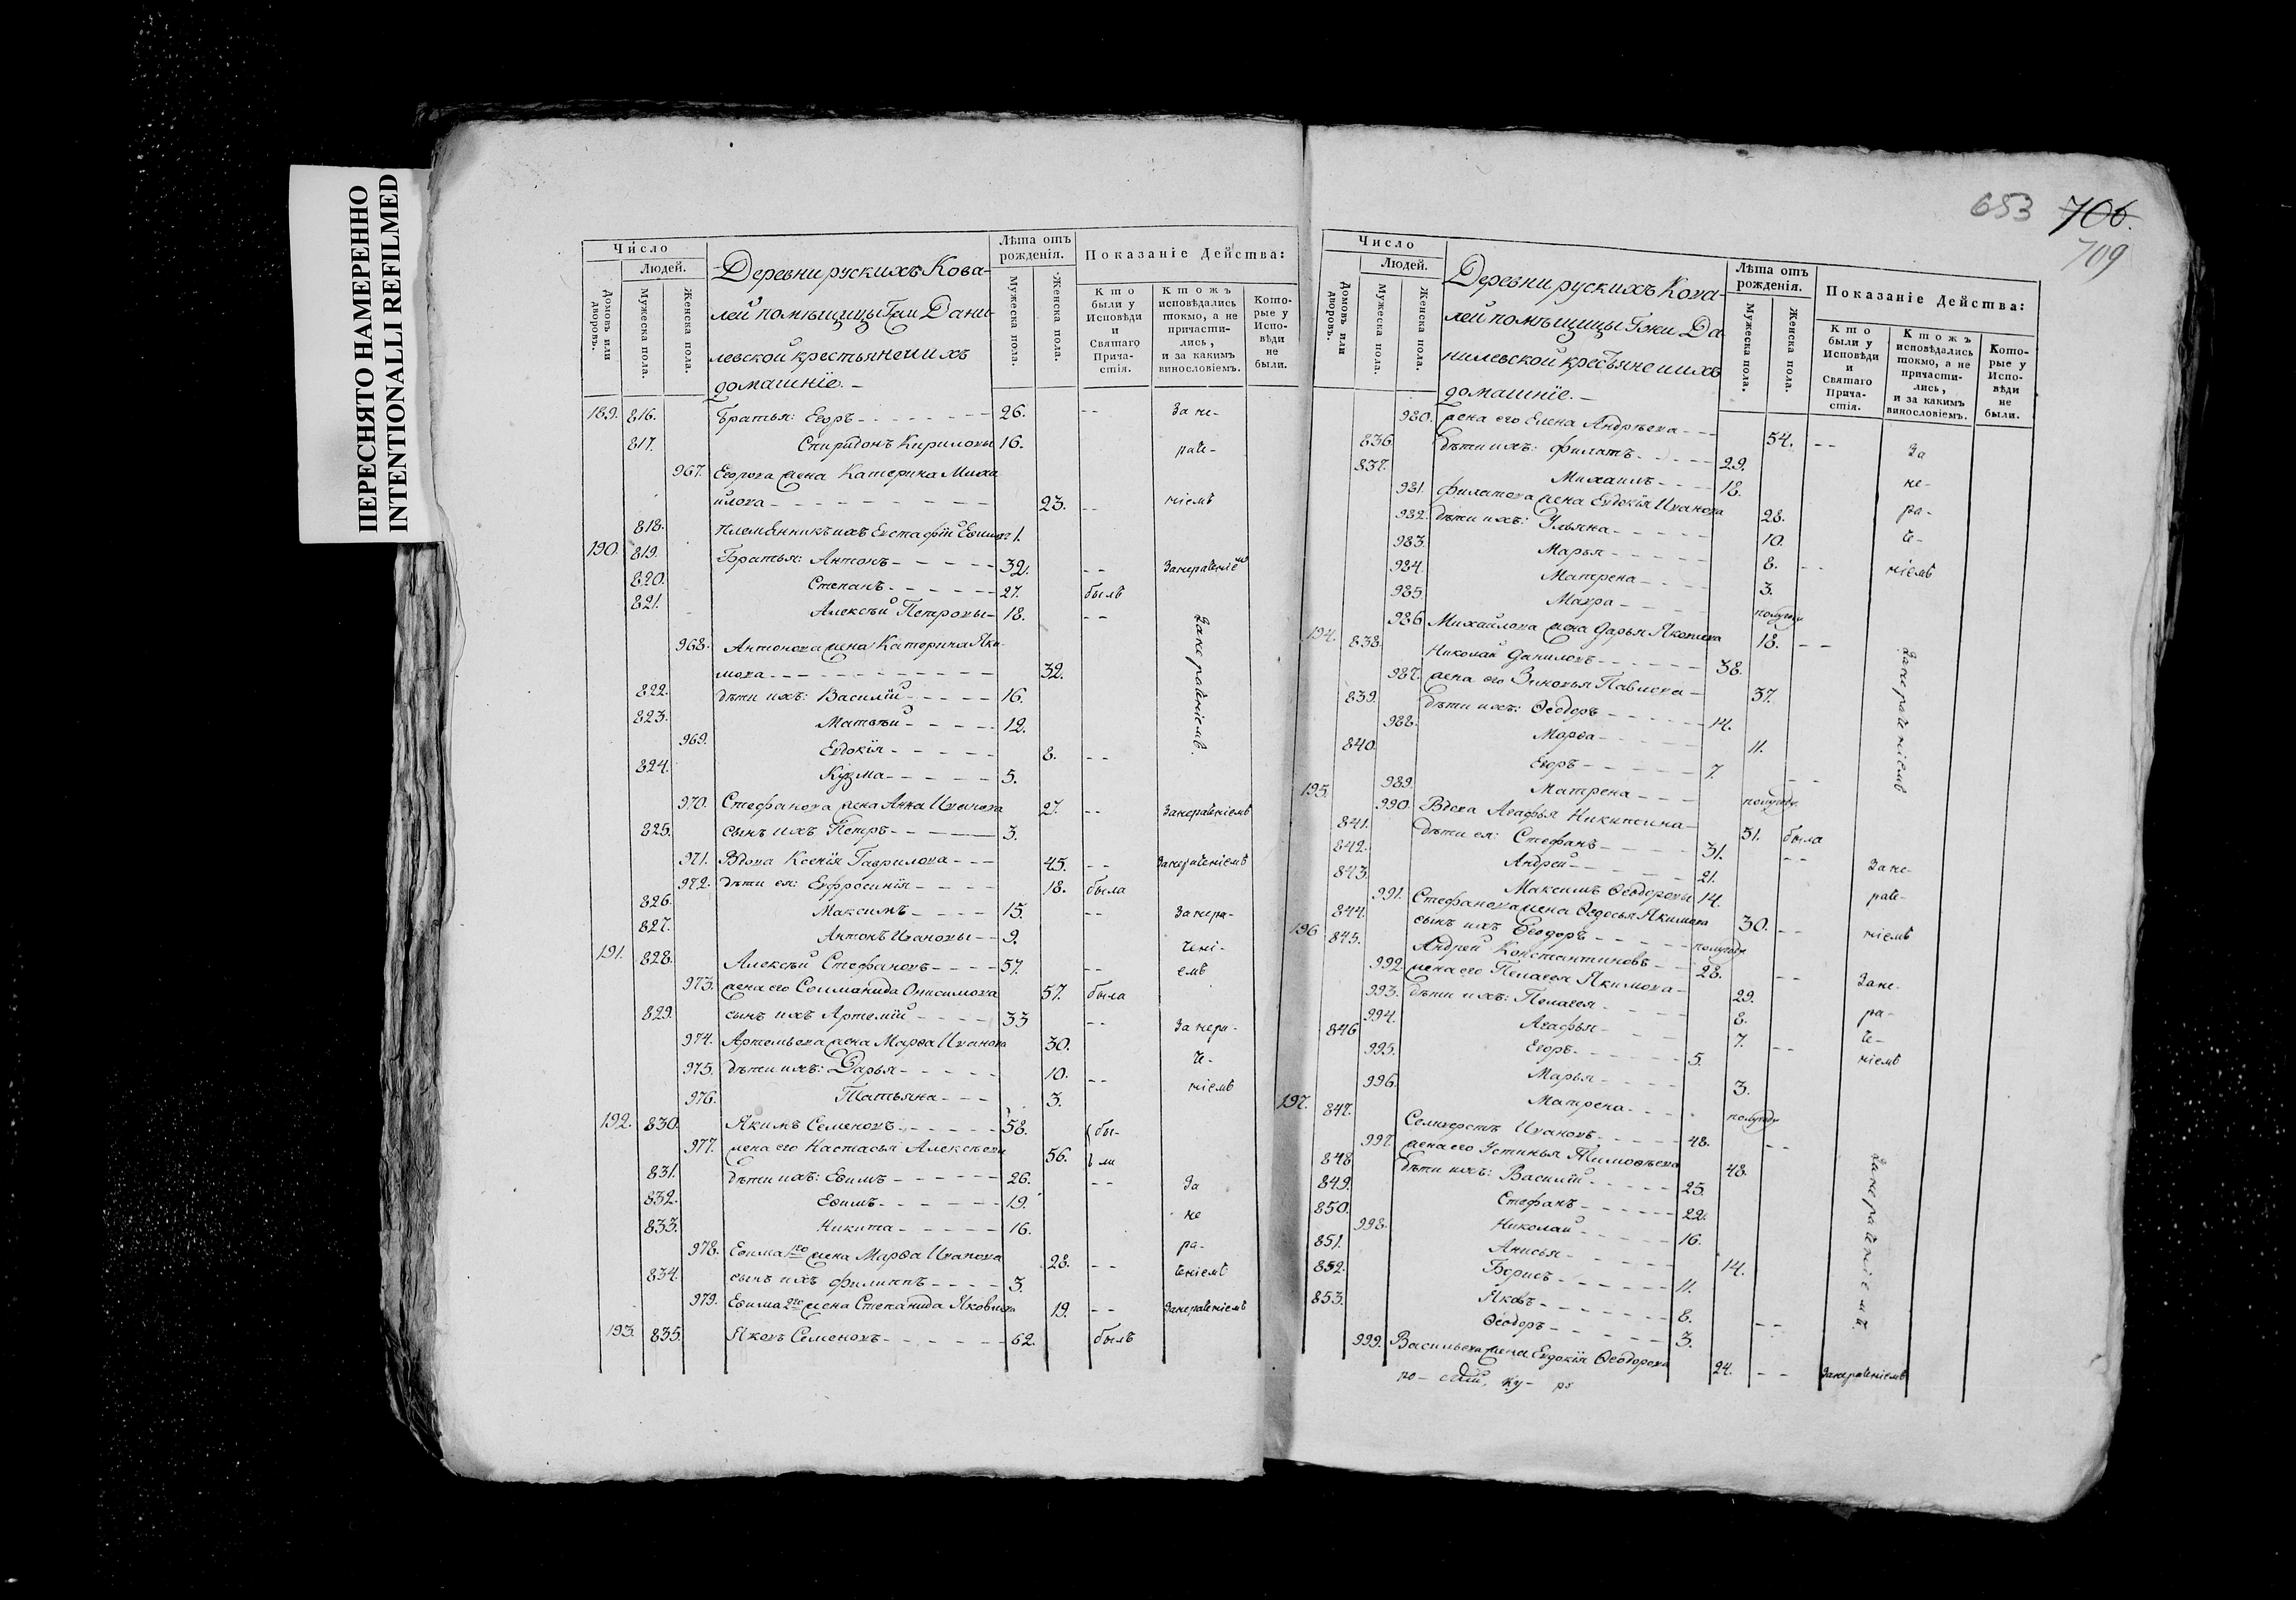 ПЕРЕСНЯТО НАМЕРЕННО
INTENTIONALLI REFILMED
Число
Людей.
Домовъ или дворовъ.
Мужеска пола.
Женска пола.
Деревни рускихъ Кова-
лей помѣщицы Гжи Дани-
левской крестьяне и ихъ
домашніе. –
Лѣта отъ рожденія.
Мужеска пола.
Женска пола.
Показаніе Действа:
Кто были у Исповѣди и Святаго Прича-стія.
Ктожъ исповѣдались токмо, а не причасти-лись, и за какимъ винословіемъ.
Кото-рые у Испо-вѣди не были.
189. 816. Братья: Егоръ 26. -- За не-
817. Спиридонъ Кириловы 16. раче-
967. Егорова жена Катерина Миха
илова 23. -- ніемъ
818. племянникъ ихъ Евстафій Ефимовъ 1.
190. 819. Братья: Антонъ 32. -- Занераченіемъ
820. Степанъ 27. былъ
821. Алексѣй Петровы 18. --
968. Антонова жена Катерина Яки-
мова 32. Занераченіемъ.
822. дѣти ихъ: Василій 16.
823. Матвѣй 12.
969. Евдокія 8. --
824. Кузма 5.
970. Стефанова жена Анна Иванова 27. -- Занераченіемъ
825. сынъ ихъ Петръ 3.
971. Вдова Ксенія Гаврилова 45. -- Занераченіемъ
972. дѣти ея: Евфросинія 18. была
826. Максимъ 15. -- Занера-
827. Антонъ Ивановы 9. чені-
191. 828. Алексѣй Стефановъ 57. -- емъ
973. жена его Соломанида Онисимова 57. была
829. сынъ ихъ Артемій 33 -- Занера-
974. Артемьева жена Марѳа Иванова 30. че-
975. дѣти ихъ: Дарья 10. -- ніемъ
976. Татьяна 3.
192. 830. Якимъ Семеновъ 58. бы-
977. жена его Настасья Алексѣева 56. ли
831. дѣти ихъ: Ефимъ 26. -- За
832. Ефимъ 19. не
833. Никита 16. ра-
978. Ефима 1го жена Марѳа Иванова 28. -- ченіемъ
834. сынъ ихъ Филиппъ 3.
979. Ефима 2го жена Степанида Яковлева 19. -- Занераченіемъ
193. 835. Яковъ Семеновъ 62. былъ
653 706.
709
Число
Людей.
Домовъ или дворовъ.
Мужеска пола.
Женска пола.
Деревни рускихъ Кова-
лей помѣщицы Гжи Да-
нилевской крестьяне и ихъ
домашніе. –
Лѣта отъ рожденія.
Мужеска пола.
Женска пола.
Показаніе Действа:
Кто были у Исповѣди и Святаго Прича-стія.
Ктожъ исповѣдались токмо, а не причасти-лись, и за какимъ винословіемъ.
Кото-рые у Испо-вѣди не были.
980. жена его Елена Андрѣева 54. -- За
836. дѣти ихъ: Филатъ 29. не-
837. Михаилъ 18. ра-
981. Филатова жена Евдокія Иванова 28. че-
982. дѣти ихъ: Ульяна 10.
983. Марья 8. -- ніемъ
984. Матрена 3.
985. Мавра полугоду
986. Михайлова жена Дарья Яковлева 18. --
194. 838. Николай Даниловъ 38. Занераченіемъ
987. жена его Зиновья Павлова 37.
839. дѣти ихъ: Ѳеодоръ 14.
988. Марѳа 11.
840. Егоръ 7. --
989. Матрена полугоду
195. 990. Вдова Агафья Никитина 51. была
841. дѣти ея: Стефанъ 31. --
842. Андрей 21. Зане-
843. Максимъ Ѳеодоровы 14. раче-
991. Стефанова жена Ѳедосья Якимова 30. -- ніемъ
844. сынъ ихъ Ѳеодоръ полугоду
196 845. Андрей Константиновъ 28. -- Зане-
992. жена его Пелагея Якимова 29. ра-
993. дѣти ихъ: Пелагея 8. че-
994. Агафья 7. -- ніемъ
846 Егоръ 5.
995. Марья 3.
996. Матрена полугоду
197. 847. Селиверстъ Ивановъ 48. --
997. жена его Устинья Тимоѳеева 48.
848. дѣти ихъ: Василій 25. Занераченіемъ
849. Стефанъ 22.
850. Николай 16.
998. Анисья 14.
851. Борисъ 11.
852. Яковъ 8. --
853. Ѳеодоръ 3.
999. Васильева жена Евдокія Ѳеодорова 24. -- Занераченіемъ